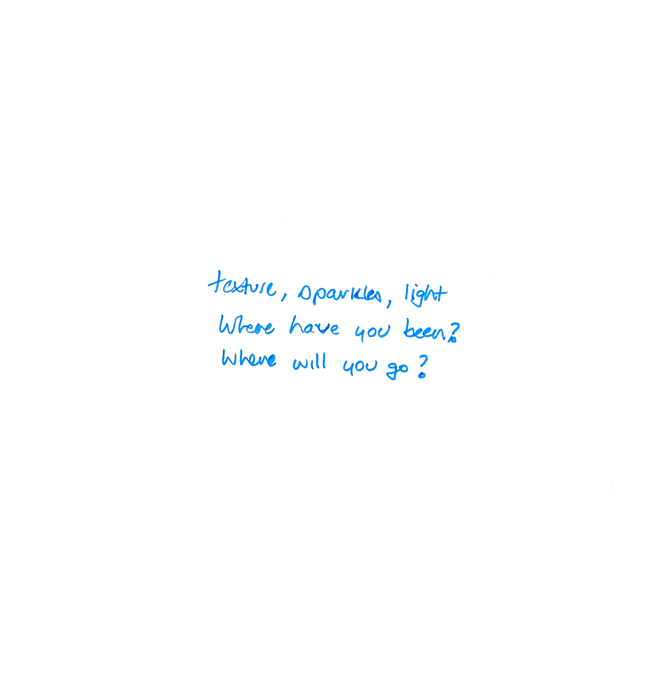 texture, sparkles, light
Where have you been?
Where will you go?